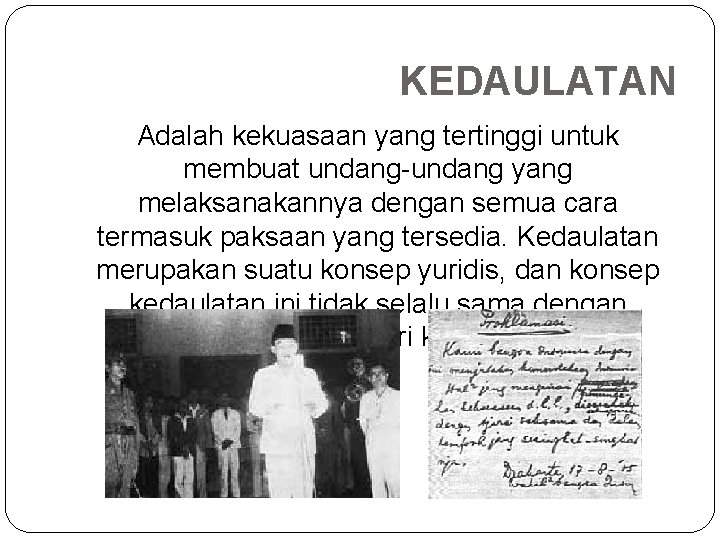 KEDAULATAN
Adalah kekuasaan yang tertinggi untuk
membuat undang-undang yang
melaksanakannya dengan semua cara
termasuk paksaan yang tersedia. Kedaulatan
merupakan suatu konsep yuridis, dan konsep
kedaulatan ini tidak selalu sama dengan
Proklamasi.
Kami bangsa Indonesia dengan
ini menjatakan kemerdekaan Indonesia
Hal2 jang mengenai
kekoeasaan d.l.l.,
dengan tjara saksama dan dalam
tempoh jang sesingkat-singkat
nja.
Djakarta, 17-8-'05
Wakil2 bangsa Indon